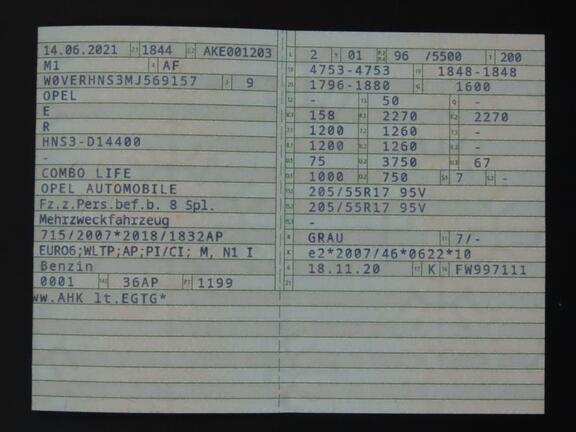 14.06.2021 1844 AKE001203
M1 AF
W0VERHNS3MJ569157 9
OPEL
E
R
HNS3-D14400
-
COMBO LIFE
OPEL AUTOMOBILE
Fz.z.Pers.bef.b. 8 Spl.
Mehrzweckfahrzeug
715/2007*2018/1832AP
EURO6;WLTP;AP;PI/CI; M, N1 I
Benzin
0001 36AP 1199
ww.AHK lt.EGTG*
2 01 96 /5500 200
4753-4753 1848-1848
1796-1880 1600
- 50 -
158 2270 2270
1200 1260 -
1200 1260 -
75 3750 67
1000 750 7 -
205/55R17 95V
205/55R17 95V
-
GRAU 7/-
e2*2007/46*0622*10
18.11.20 K FW997111